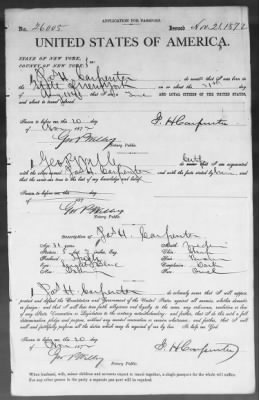 APPLICATION FOR PASSPORT
No. 26005. Issued Nov. 21. 1872
UNITED STATES OF AMERICA.
STATE OF NEW YORK,
COUNTY OF NEW YORK
I, Jas H. Carpenter do swear that I was born in
State of New York on or about the
AND LOYAL CITIZEN OF THE UNITED STATES,
and about to travel abroad.
Sworn to before me this 20 day
of Nov 1872
J. H. Carpenter
Geo P. Willey
Notary Public.
I, Geo P. Willey certify that I am acquainted
with the above named Jas H. Carpenter and with the facts stated by him and
that the same are true to the best of my knowledge and belief.
Sworn to before me this day
of
Geo P. Willey
Notary Public.
DESCRIPTION OF Jas H. Carpenter
Age: 31 years
Mouth:
Stature: 5 feet inches, Eng.
Chin:
Forehead: High
Hair:
Eyes:
Complexion: Dark
Nose:
Face: Oval
I, Jas H. Carpenter do solemnly swear that I will support,
protect and defend the Constitution and Government of the United States against all enemies, whether domestic
or foreign; and that I will bear true faith, allegiance and loyalty to the same, any ordinance, resolution or law
of any State Convention or Legislature to the contrary notwithstanding; and further, that I do this with a full
determination, pledge and purpose, without any mental reservation or evasion whatsoever; and further, that I will
well and faithfully perform all the duties which may be required of me by law. So help me God.
Sworn to before me this 20 day
of Nov 1872
J. H. Carpenter
Geo P. Willey
Notary Public.
When husband, wife, minor children and servants expect to travel together, a single passport for the whole will suffice.
For any other person in the party a separate passport will be required.